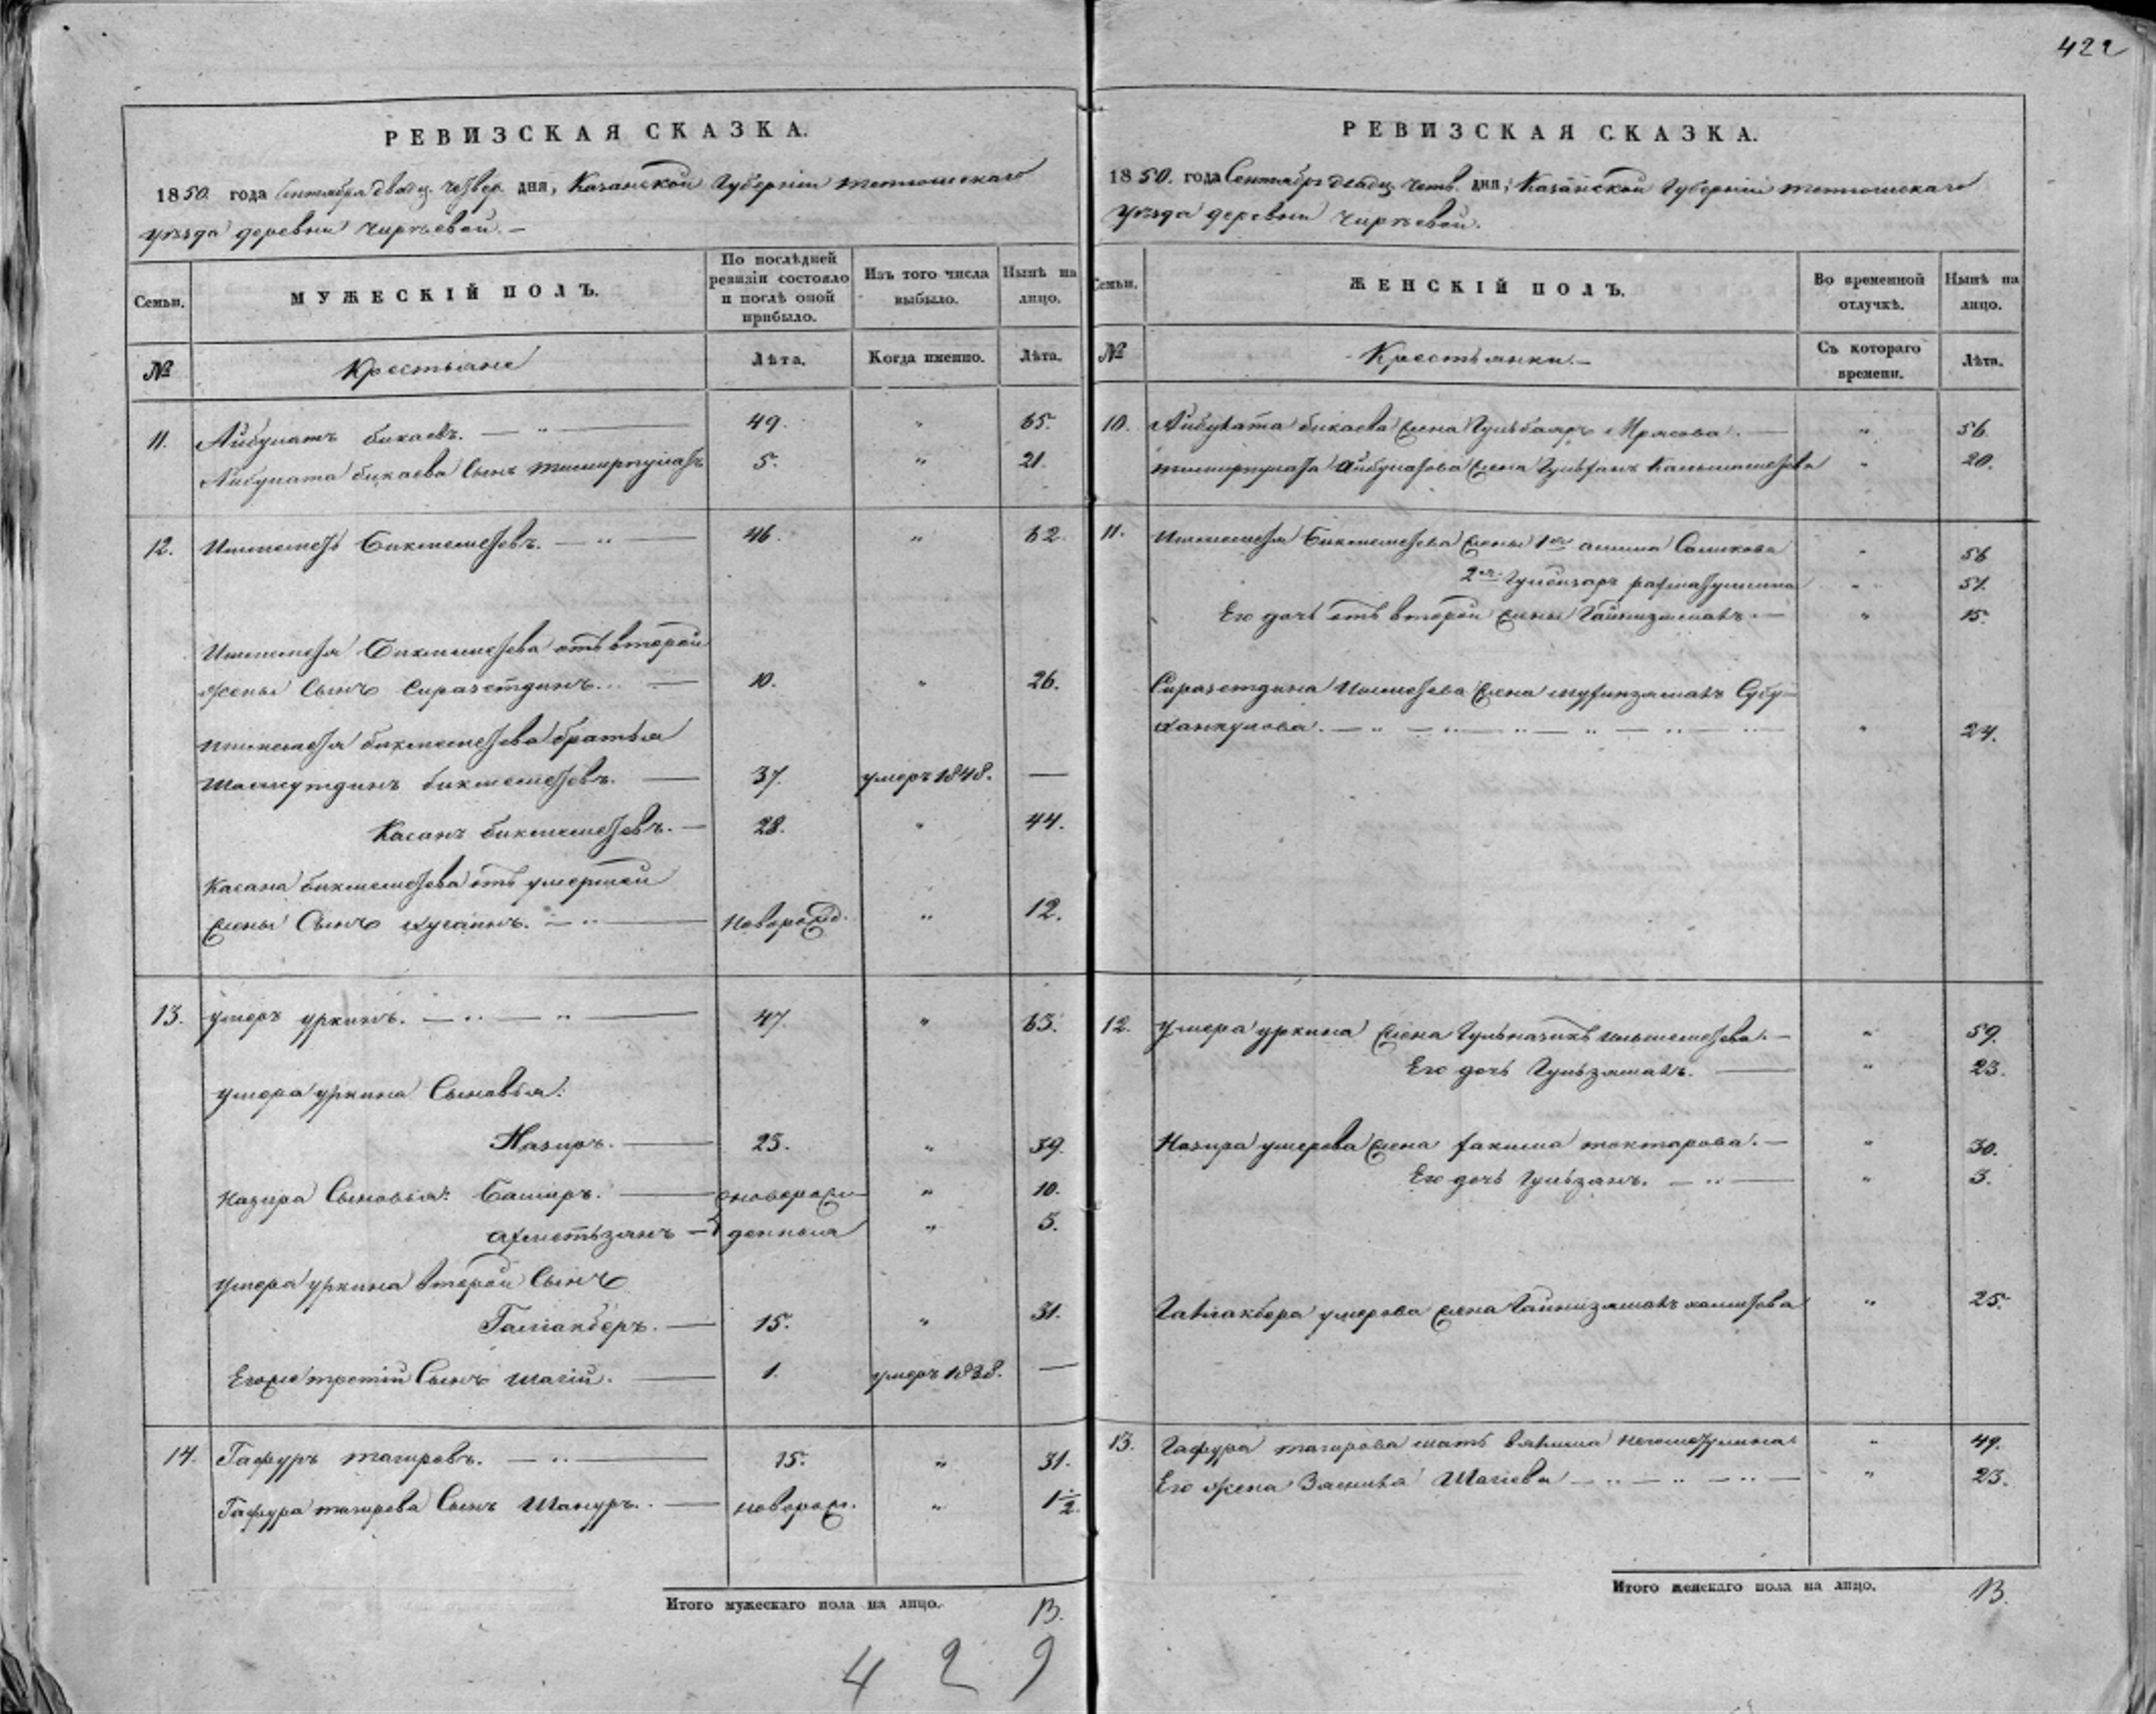 422
РЕВИЗСКАЯ СКАЗКА.
1850. года Сентября двадц. четвер. дня, Казанской Губерніи тетюшскаго
уѣзда деревни Чиркѣевой. —
Семьи.
МУЖЕСКІЙ ПОЛЪ.
По послѣдней ревизіи состояло и послѣ оной прибыло.
Изъ того числа выбыло.
Нынѣ на лицо.
№
Крестьяне
Лѣта.
Когда именно.
Лѣта.
11. Айбулатъ бикаевъ. — „ — 49. „ 65.
Айбулата бикаева Сынъ тимирпулатъ 5. „ 21.
12. Ишмаметь Бикмеметевъ. — „ — 46. „ 62.
Бикмеметева отъ второй
жены Сынъ Сиразетдинъ. — 10. „ 26.
бикмеметева братья
бикмеметевъ. — 37. умеръ 1848. —
Хасанъ бикмеметевъ. — 28. „ 44.
Хасана бикмеметева отъ умершей
жены Сынъ — „ — Новорожд. „ 12.
13. умеръ уркинъ. — „ — „ — 47. „ 63.
умера уркина Сыновья:
Назиръ. — 23. „ 39.
Назира Сыновья: Баширъ. — новорож- „ 10.
ахметьзянъ — денныя „ 5.
умера уркина второй Сынъ
Галіакберъ. — 15. „ 31.
Егоже третій Сынъ шагій. — 1. умеръ 1838. —
14. Гафуръ тагировъ. — „ — 15. „ 31.
Гафура тагирова Сынъ Шакуръ. — новорож. „ 1½.
Итого мужескаго пола на лицо. 13.
429
РЕВИЗСКАЯ СКАЗКА.
1850. года Сентября двадц. четв. дня, Казанской Губерніи тетюшскаго
уѣзда деревни Чиркѣевой.
Семьи.
ЖЕНСКІЙ ПОЛЪ.
Во временной отлучкѣ.
Нынѣ на лицо.
№
Крестьянки. —
Съ котораго времени.
Лѣта.
10. Айбулата бикаева жена Гульбаяръ — „ 56.
тимирпулата айбулатова жена „ 20.
11. Бикмеметева жены 1ая Салихова „ 56
2ая „ 51.
Его дочь отъ второй жены Гайнизямалъ. — „ 15.
Сиразетдина жена
— „ — „ — „ — „ — „ 24.
12. Умера уркина жена — „ 59.
Его дочь Гульзямалъ. — „ 23.
Назира умерова жена токтарова. — „ 30.
Его дочь Гульзянъ. — „ — „ 3.
Галіакбера умерова жена Гайнизямалъ „ 25.
13. Гафура тагирова мать „ 49.
Его жена Шагіева — „ — „ — „ — „ 23.
Итого женскаго пола на лицо. 13.